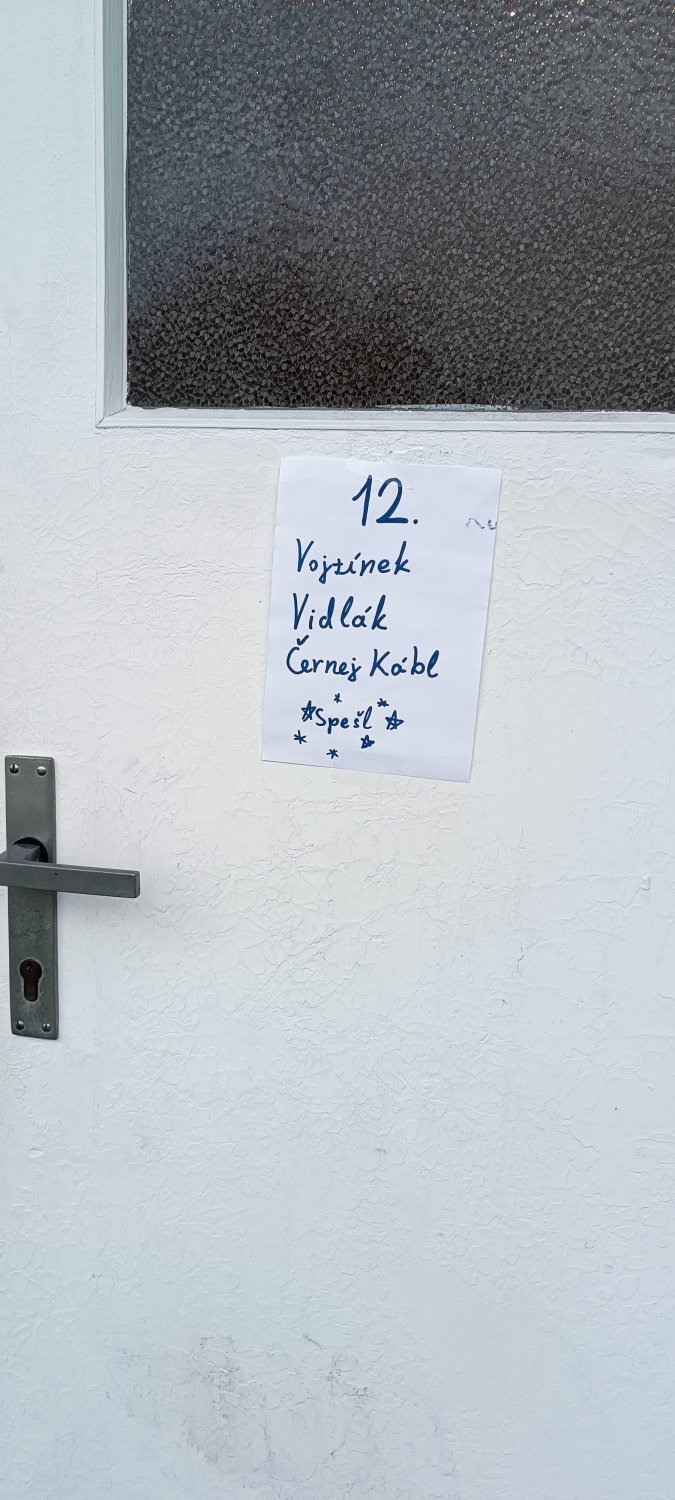 12.
Vojtínek
Vidlák
Černej Kábl
Spešl